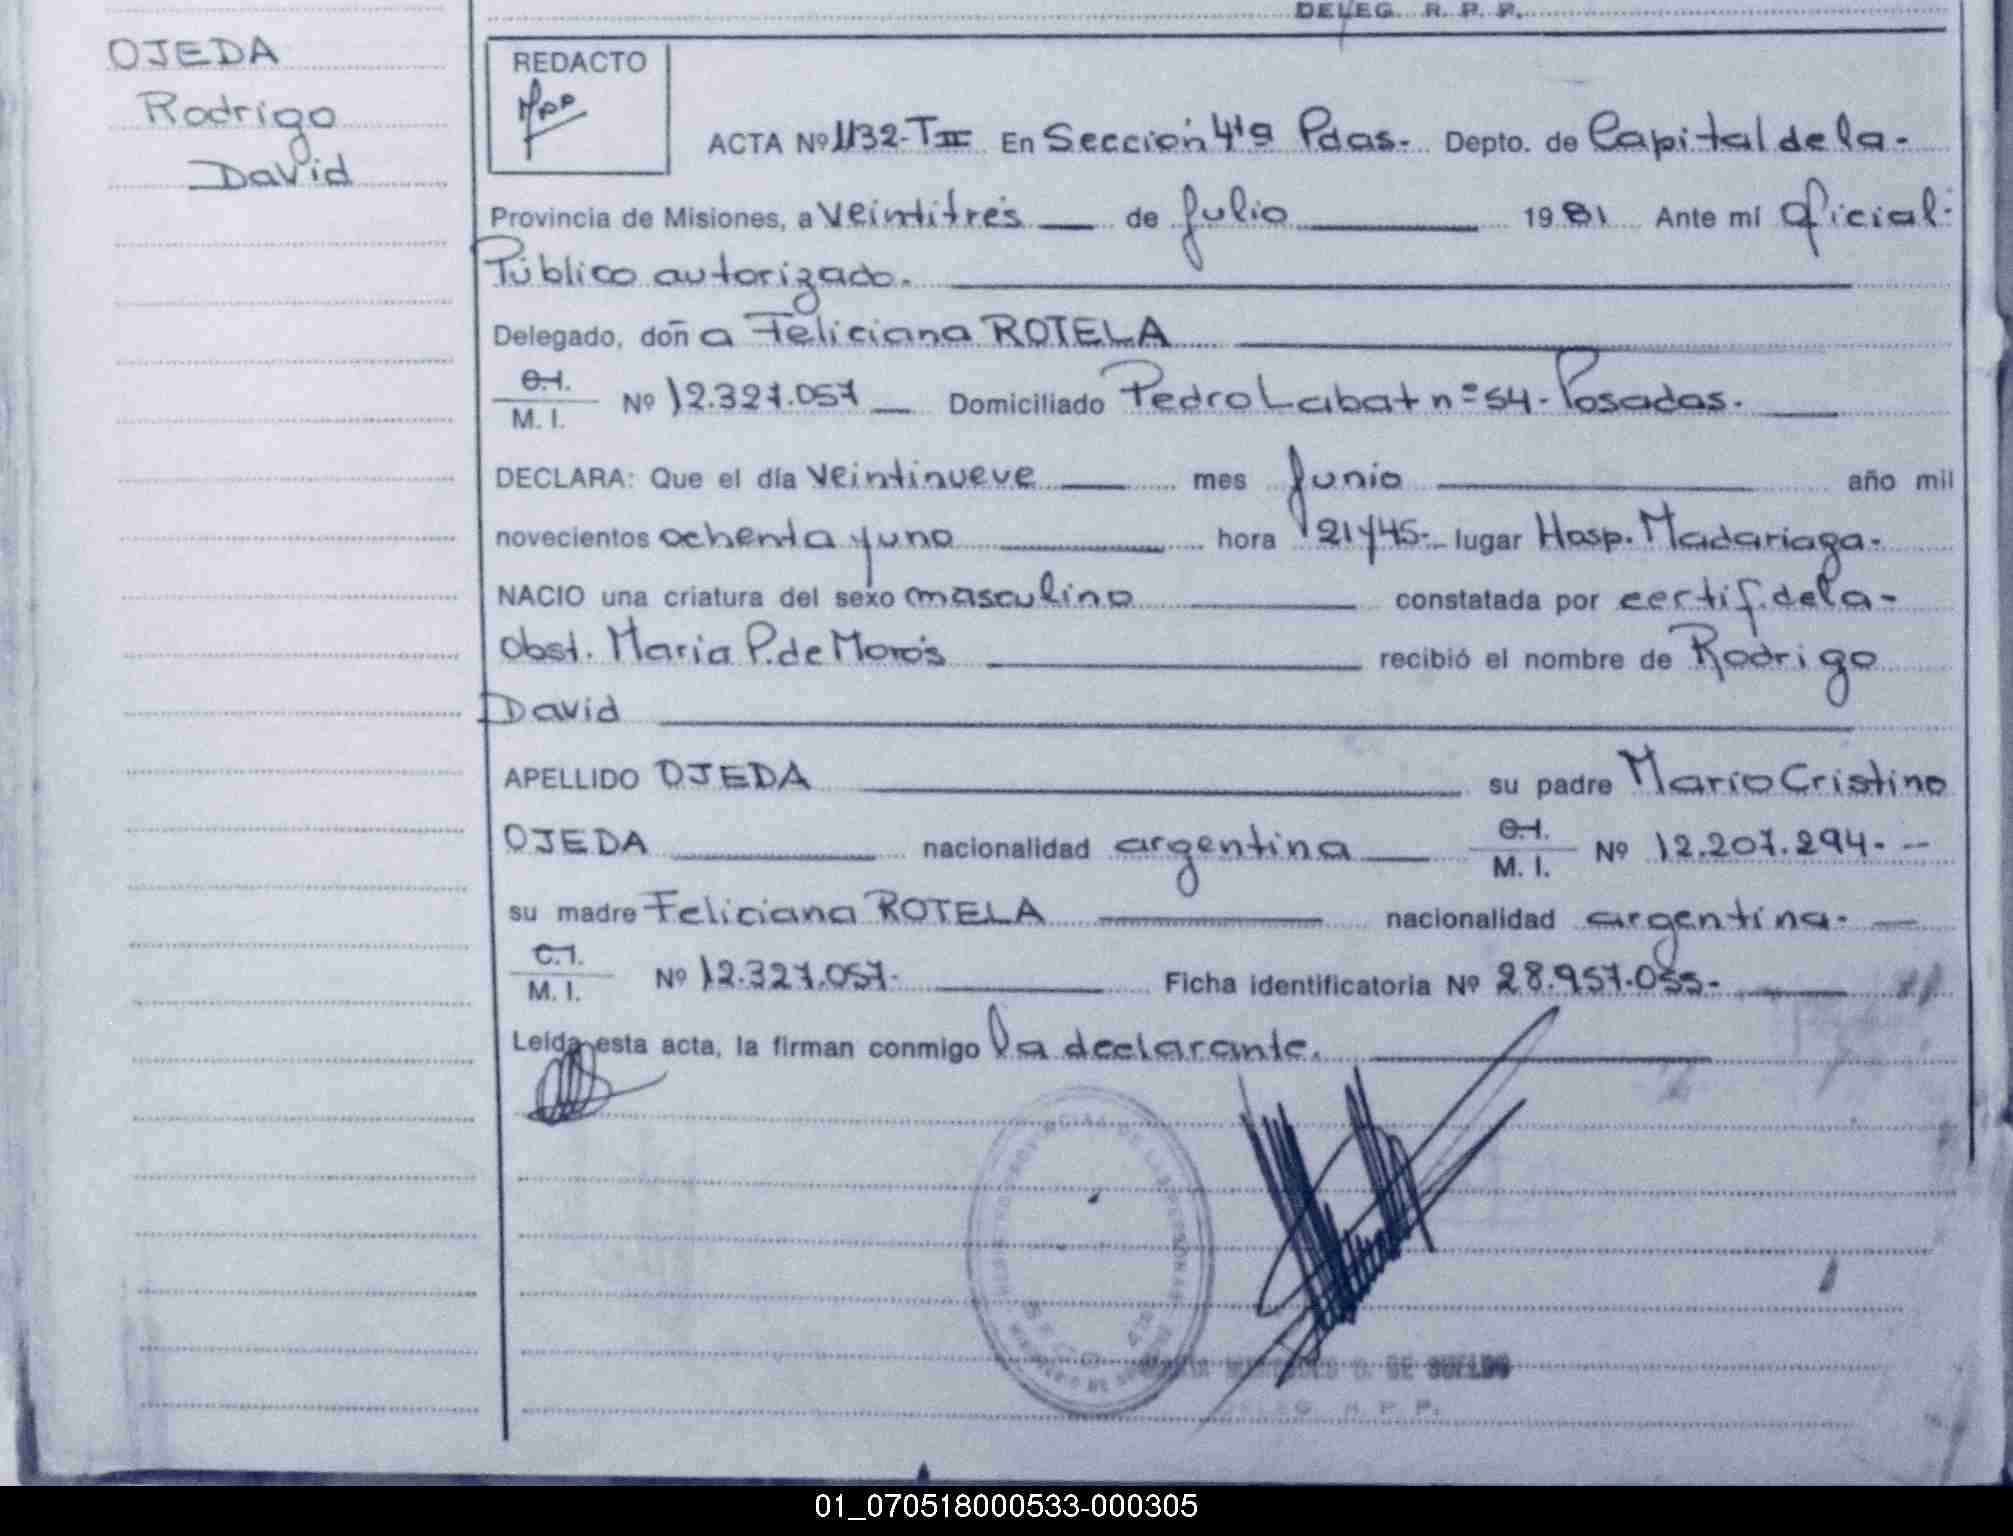 DELEG. R. P. P.
OJEDA
Rodrigo
David
REDACTO
ACTA Nº 1132-TIII En Sección 4ta Pdas.- Depto. de Capital de la-
Provincia de Misiones, a veintitrés de Julio 1981 Ante mí Oficial-
Público autorizado.
Delegado, doña Feliciana ROTELA
C.I.
M. I. Nº 12.327.057 Domiciliado Pedro Labat nº 54- Posadas.
DECLARA: Que el día veintinueve mes Junio año mil
novecientos ochenta y uno hora 21 y 45- lugar Hosp. Madariaga-
NACIO una criatura del sexo masculino constatada por certif. de la-
Obst. Maria P. de Morós recibió el nombre de Rodrigo
David
APELLIDO OJEDA su padre Mario Cristino
OJEDA nacionalidad argentina C.I.
M. I. Nº 12.207.294.-
su madre Feliciana ROTELA nacionalidad argentina-
C.I.
M. I. Nº 12.327.057- Ficha identificatoria Nº 28.957.055-
Leída esta acta, la firman conmigo la declarante.
DE SUELDO
DELEG. R. P. P.
01_070518000533-000305